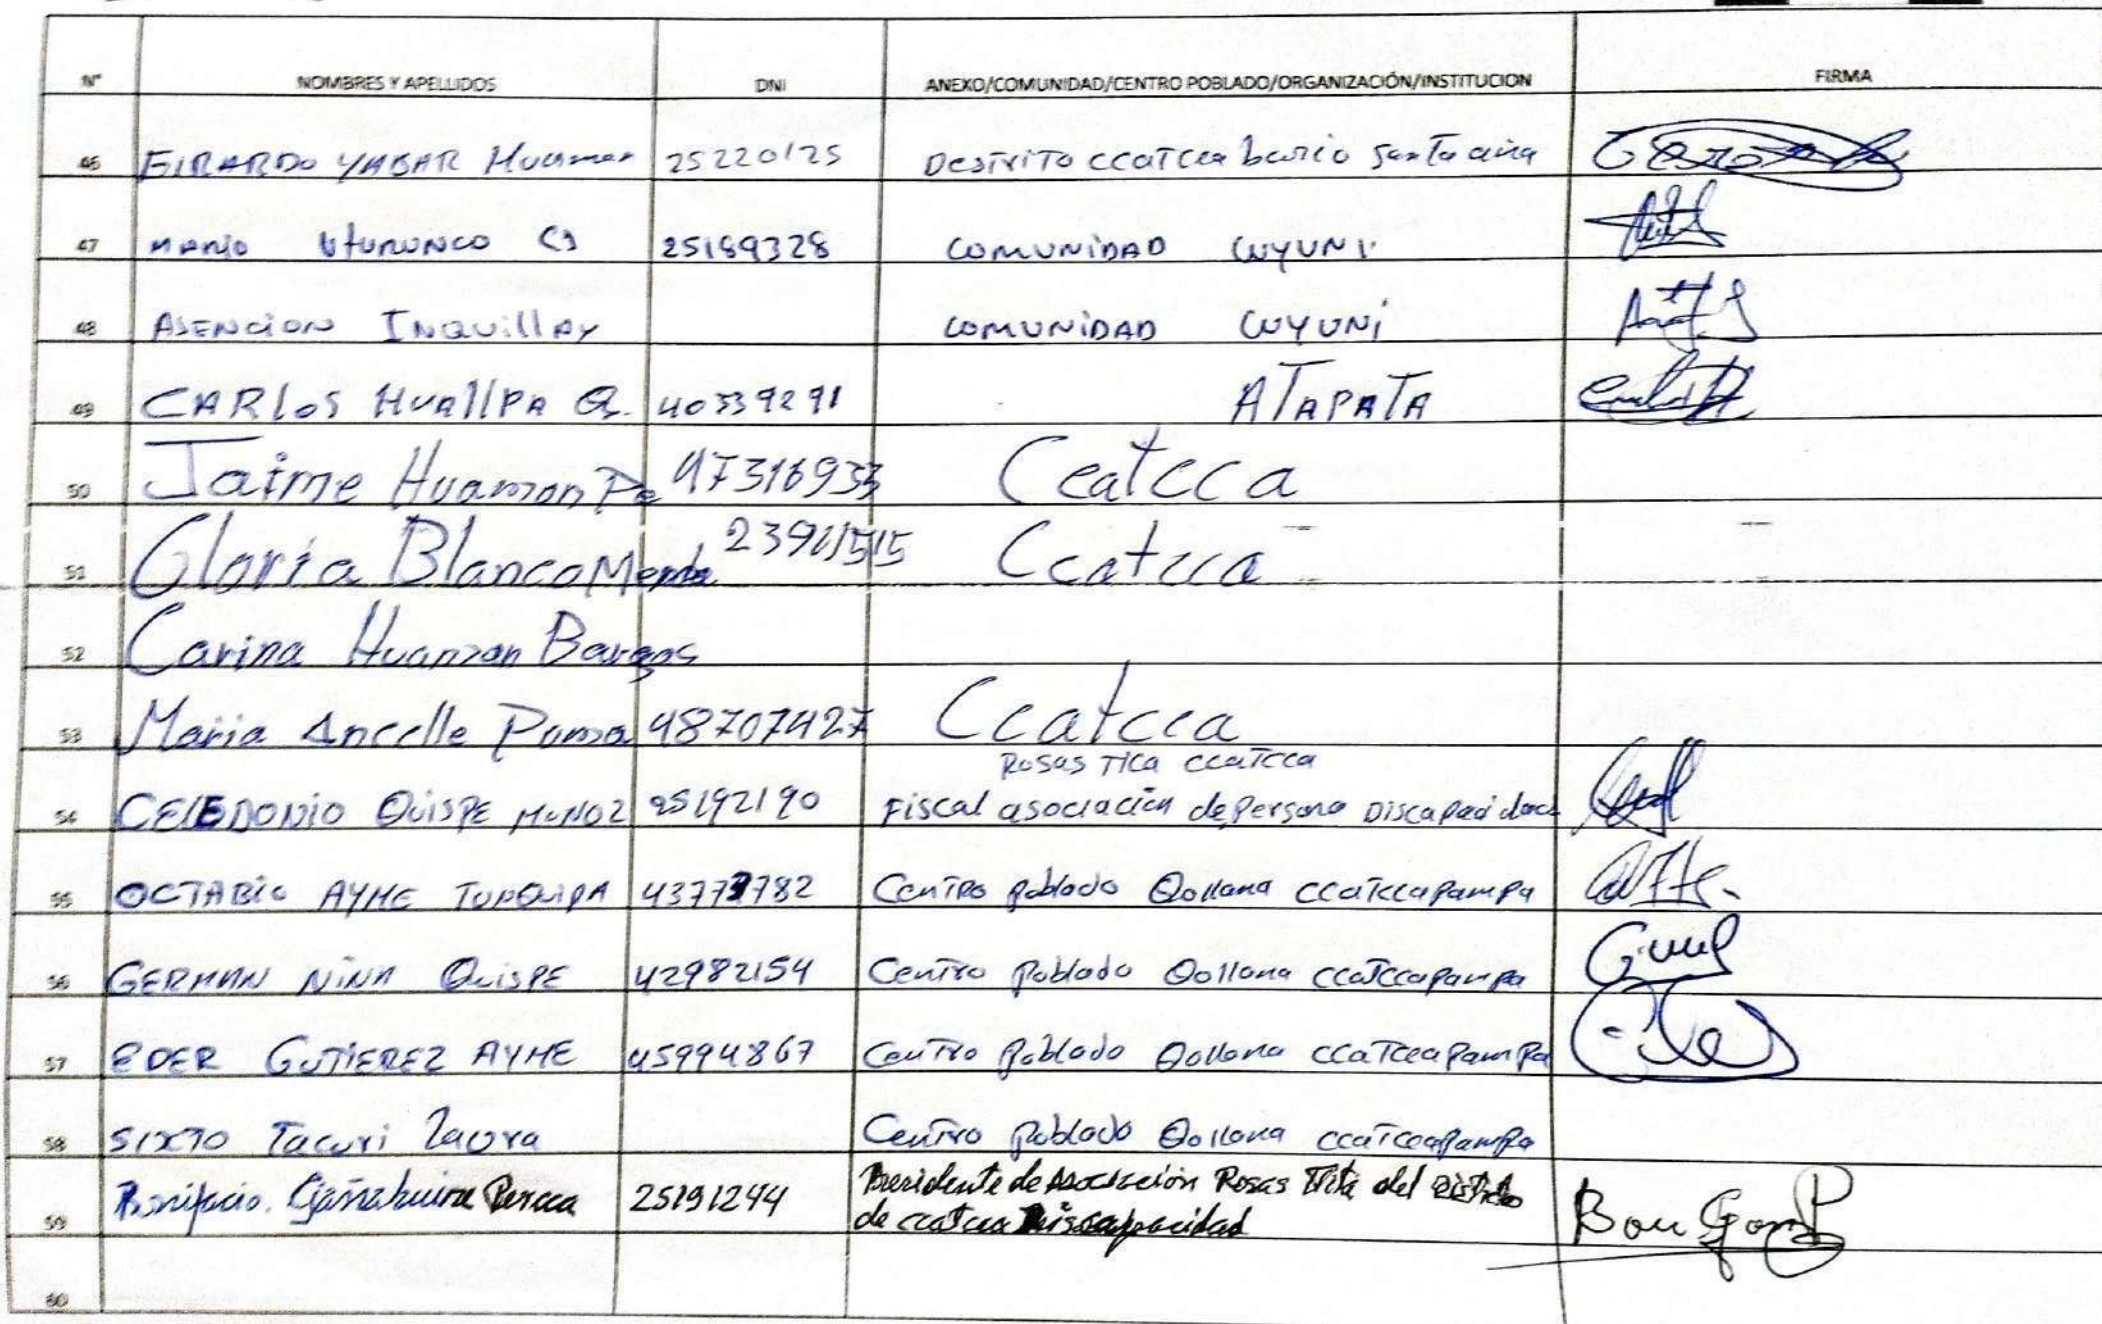 N° NOMBRES Y APELLIDOS DNI ANEXO/COMUNIDAD/CENTRO POBLADO/ORGANIZACIÓN/INSTITUCION FIRMA
46 GIRARDO YABAR Huaman 25220125 Destrito ccatcca barrio santa ana
47 MARIO UTURUNCO 25189328 COMUNIDAD CUYUNI
48 ASENCION INQUILLAY COMUNIDAD CUYUNI
49 CARLOS HUALLPA Q. 40339291 ATAPATA
50 Jaime Huaman Pe 47316933 Ccatcca
51 Gloria Blanco Ccatcca
52 Carina Huaman Bargos
53 Maria Ancelle Puma 48707427 Ccatcca
Rosas Tica ccatcca
54 CELEDONIO QUISPE MUNOZ 25192190 Fiscal asociación de persona Discapacidad
55 OCTABIO AYME TUNQUIPA Centro poblado Qollana ccatccapampa
56 GERMAN NINA QUISPE 42982154 Centro poblado Qollana ccatccapampa
57 EDER GUTIEREZ AYME 45994867 Centro poblado Qollana ccatccapampa
58 SIXTO Tacuri Centro poblado Qollana ccatccapampa
59 Bonifacio 25191244 Presidente de Asociación Rosas del Distrito
de ccatcca Discapacidad
60